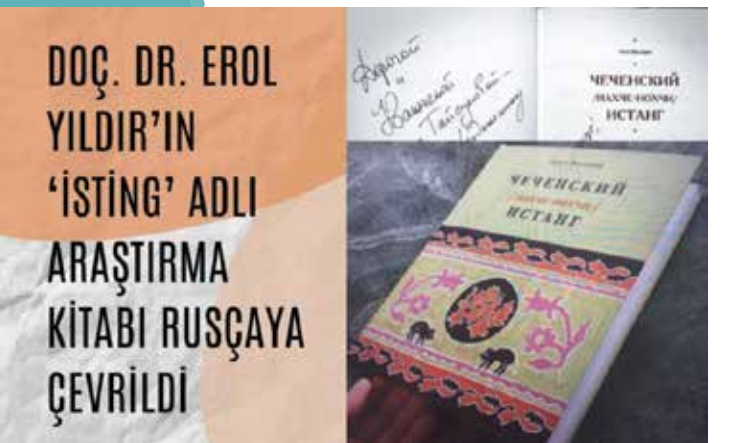 DOÇ. DR. EROL
YILDIR’IN
‘İSTİNG’ ADLI
ARAŞTIRMA
KİTABI RUSÇAYA
ÇEVRİLDİ
Дорогой
ЧЕЧЕНСКИЙ
/НАХЧЕ-НОХЧИ/
ИСТАНГ
ЧЕЧЕНСКИЙ
ИСТАНГ